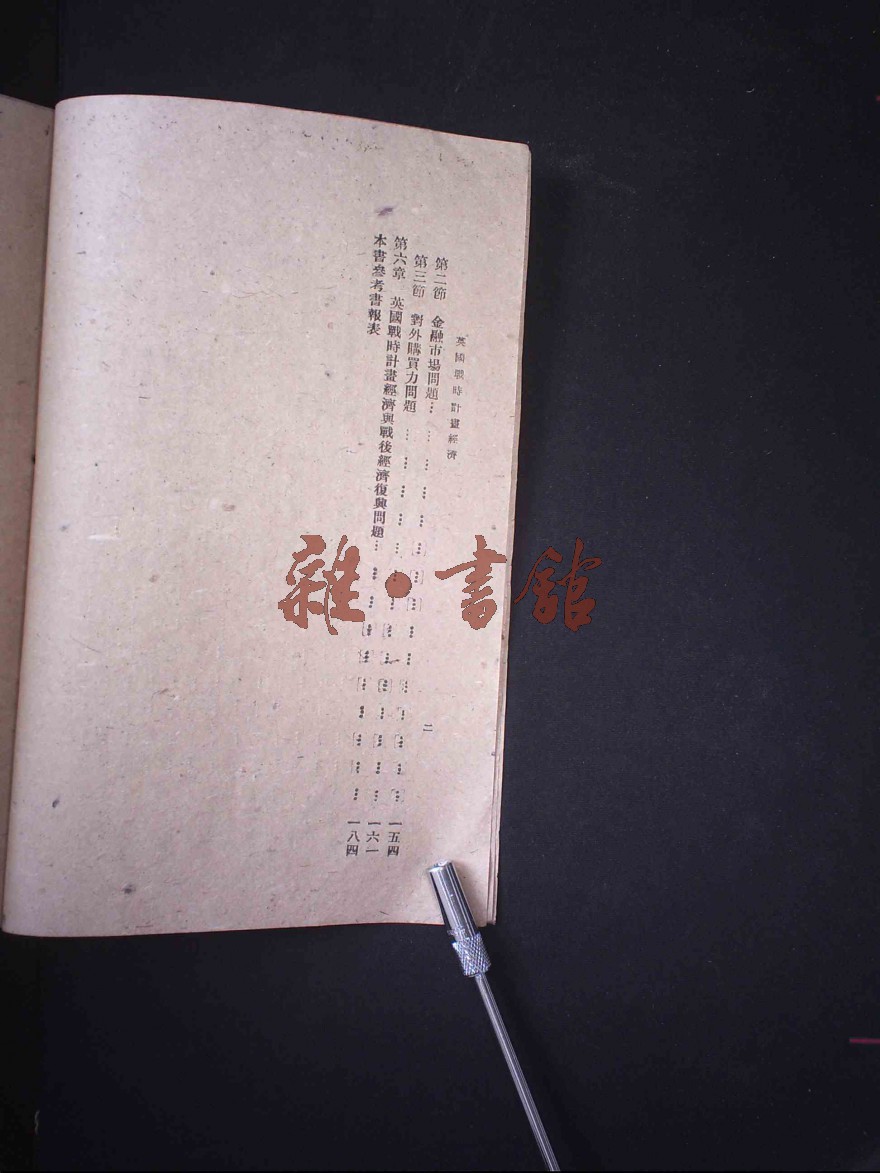 英國戰時計畫經濟 二
第二節 金融市場問題………………………一五四
第三節 對外購買力問題………………………一六一
第六章 英國戰時計畫經濟與戰後經濟復興問題………………………一八四
本書參考書報表
雜·書館